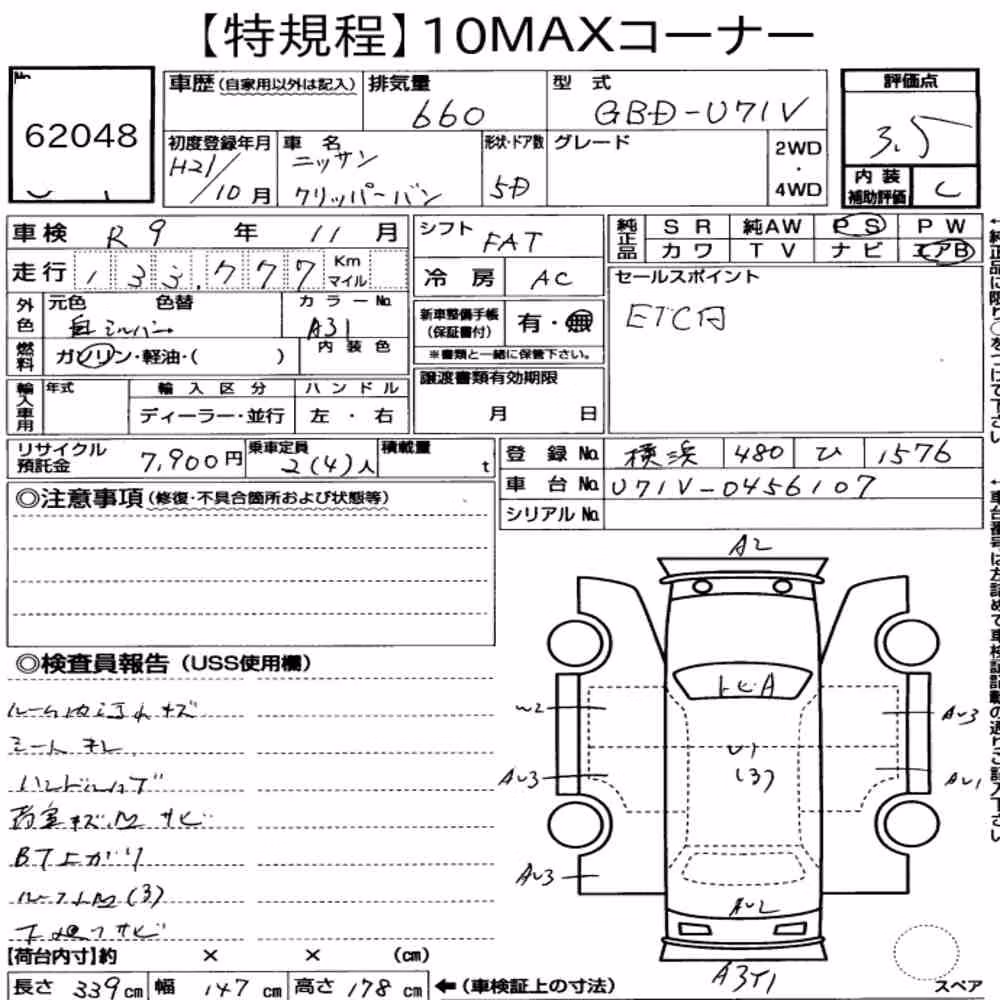 【特規程】10MAXコーナー
No.
62048
車歴(自家用以外は記入)
排気量
660
型 式
GBD-U71V
評価点
3.5
初度登録年月
H21/10月
車 名
ニッサン
クリッパーバン
形状・ドア数
5D
グレード
2WD
・
4WD
内 装
補助評価
C
車検 R9 年 11 月
走行 133,777 Km マイル
外色
元色
色替
カラーNo.
A31
内装色
燃料
ガソリン・軽油・( )
輸入車用
年式
輸入区分
ディーラー・並行
ハンドル
左 ・ 右
シフト
FAT
冷 房
AC
新車整備手帳
(保証書付)
有・無
※書類と一緒に保管下さい。
譲渡書類有効期限
月 日
純正品
SR 純AW PS PW
カワ TV ナビ エアB
セールスポイント
ETC付
リサイクル
預託金
7,900円
乗車定員
2(4)人
積載量
t
登 録 No. 横浜 480 ひ 1576
車 台 No. U71V-0456107
シリアル No.
◎注意事項(修復・不具合箇所および状態等)
◎検査員報告(USS使用欄)
ルーム内汚れキズ
シートキレ
荷室キズ凹サビ
BT上がり
下廻りサビ
【荷台内寸】約 × × (cm)
長さ 339cm 幅 147cm 高さ 178cm
←(車検証上の寸法)
A2
トビA
W2
AU3
AU3
U1
(3)
AU3
AU1
AU2
スペア